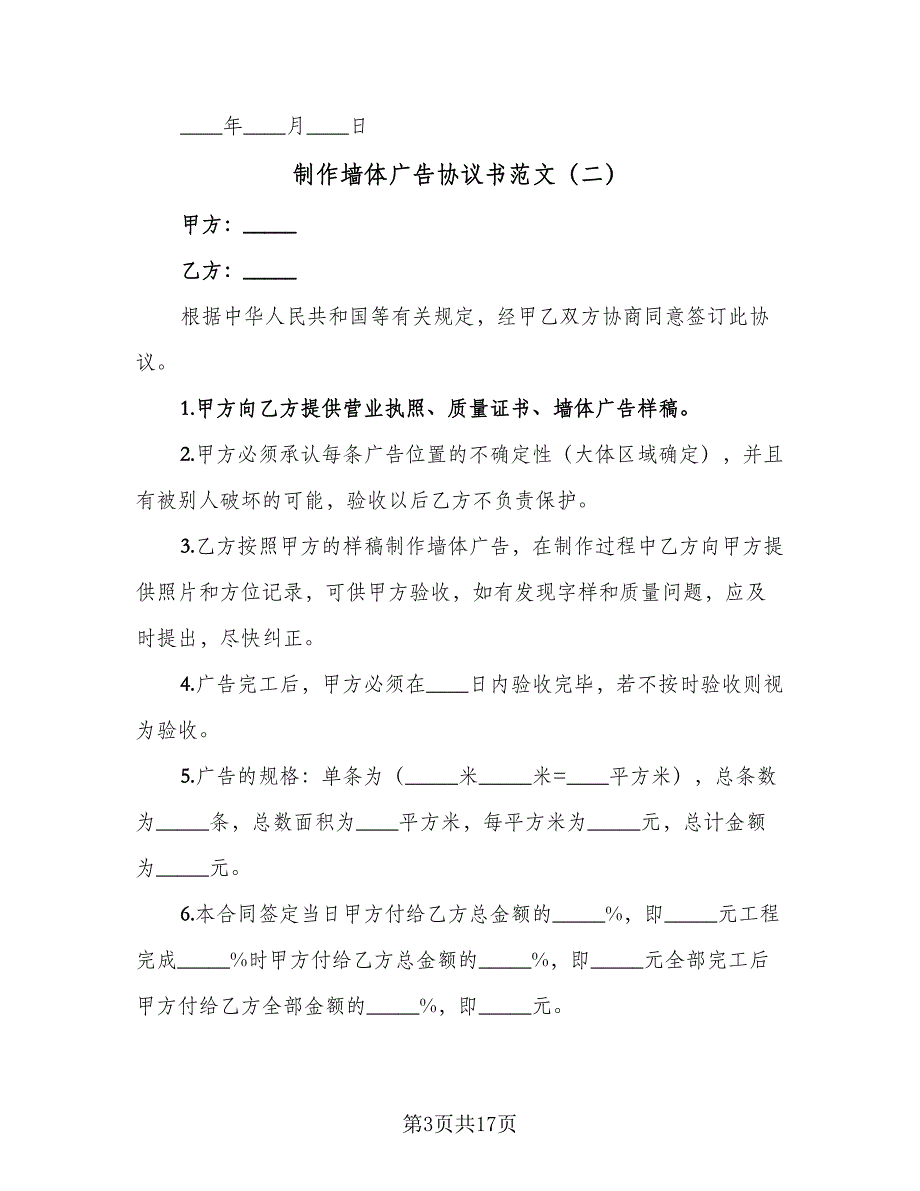 ____年____月____日
制作墙体广告协议书范文（二）
甲方：_____
乙方：_____
根据中华人民共和国等有关规定，经甲乙双方协商同意签订此协
议。
1.甲方向乙方提供营业执照、质量证书、墙体广告样稿。
2.甲方必须承认每条广告位置的不确定性（大体区域确定），并且
有被别人破坏的可能，验收以后乙方不负责保护。
3.乙方按照甲方的样稿制作墙体广告，在制作过程中乙方向甲方提
供照片和方位记录，可供甲方验收，如有发现字样和质量问题，应及
时提出，尽快纠正。
4.广告完工后，甲方必须在____日内验收完毕，若不按时验收则视
为验收。
5.广告的规格：单条为（_____米_____米=____平方米），总条数
为_____条，总数面积为____平方米，每平方米为_____元，总计金额
为_____元。
6.本合同签定当日甲方付给乙方总金额的_____%，即_____元工程
完成_____%时甲方付给乙方总金额的_____%，即_____元全部完工后
甲方付给乙方全部金额的_____%，即_____元。
第3页共17页